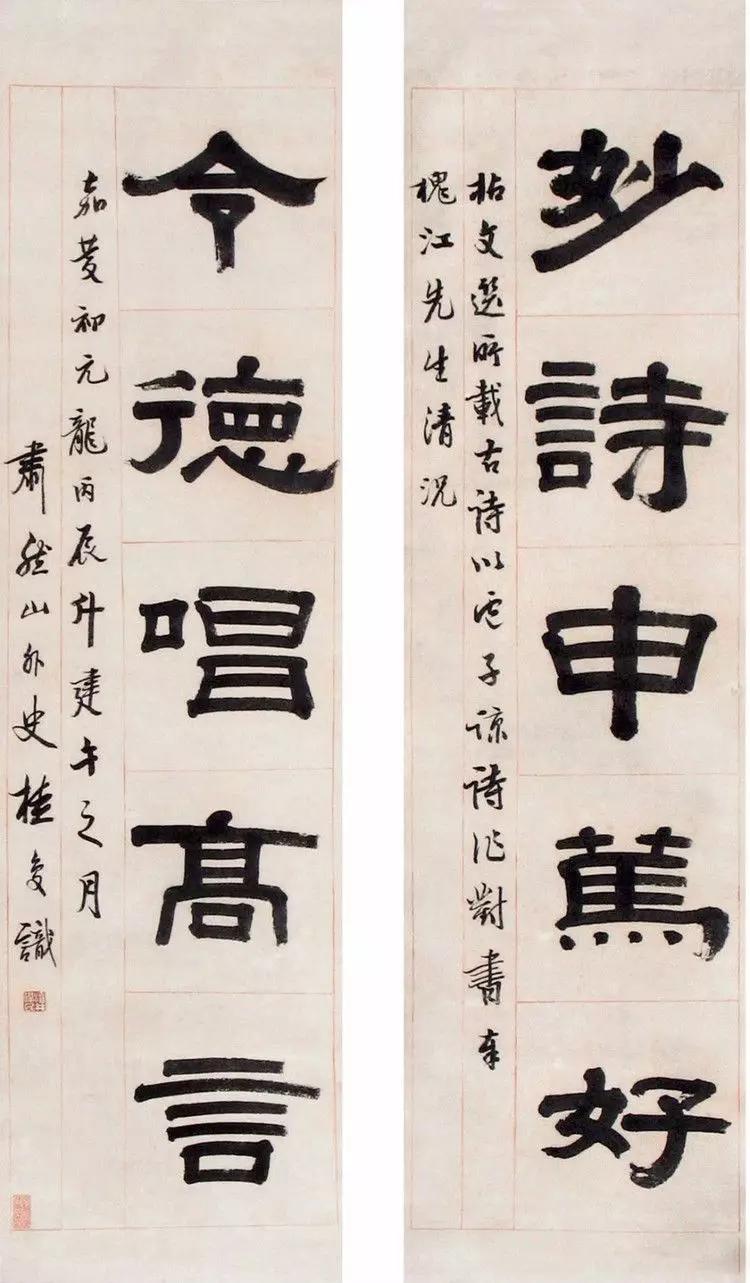 妙詩申篤好
拈文選所載古詩以盧子諒詩作對書奉
槐江先生清况
令德唱髙言
嘉慶初元龍丙辰斗建午之月
肅然山外史桂复識